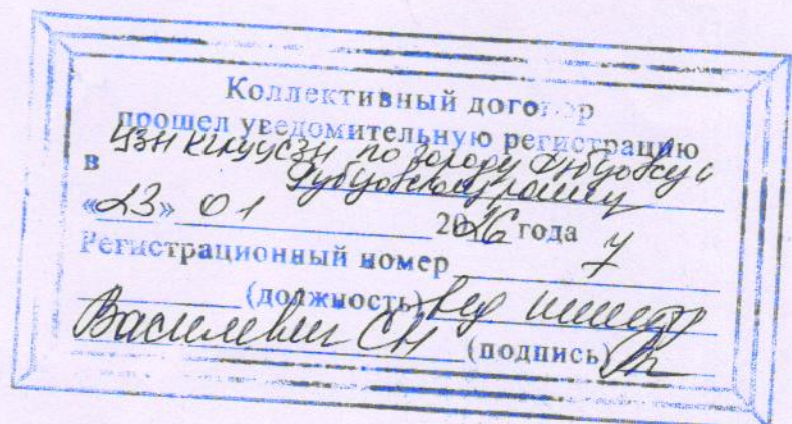 Коллективный договор
прошел уведомительную регистрацию
в ЦЗН КГКУ УСЗН по городу Рубцовску и
Рубцовскому району
«23» 01 2026 года
Регистрационный номер 7
(должность) вед инспектор
Василевич СН (подпись)